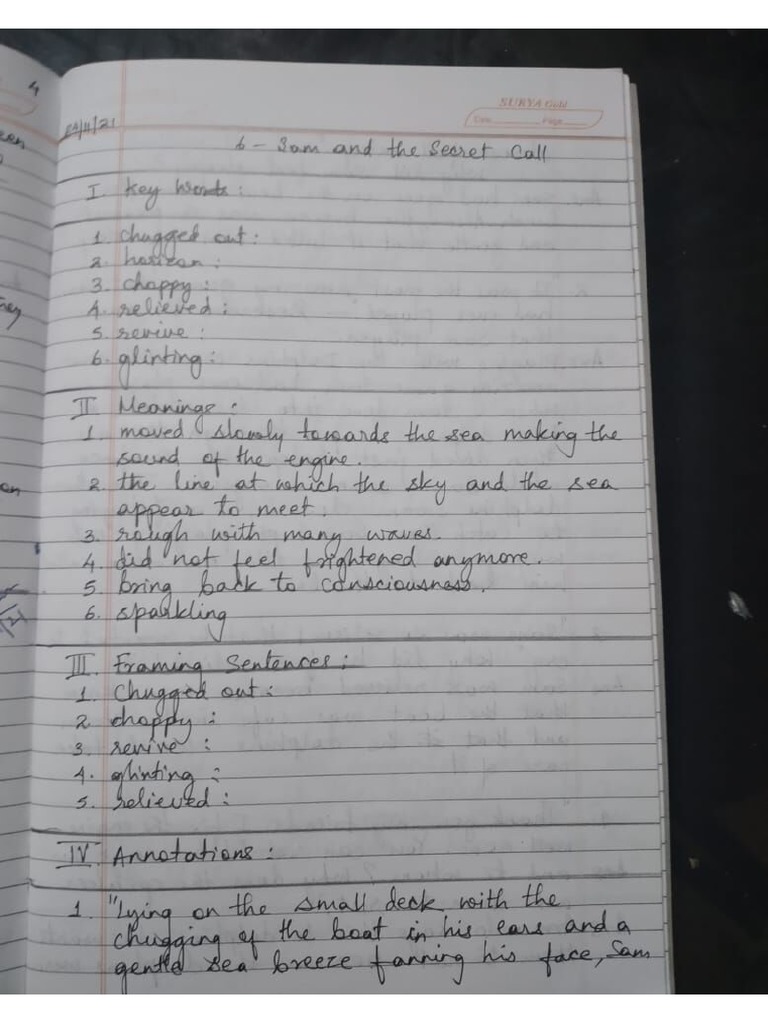 SURYA Gold
Date Page
24/11/21
6 - Sam and the Secret Call
I Key Words :
1. chugged out :
2. horizon :
3. choppy :
4. relieved :
5. revive :
6. glinting :
II Meanings :
1. moved slowly towards the sea making the
sound of the engine.
2. the line at which the sky and the sea
appear to meet.
3. rough with many waves.
4. did not feel frightened anymore.
5. bring back to consciousness.
6. sparkling
III. Framing Sentences :
1. Chugged out :
2. choppy :
3. revive :
4. glinting :
5. relieved :
IV Annotations :
1. "Lying on the small deck with the
chugging of the boat in his ears and a
gentle sea breeze fanning his face, Sam